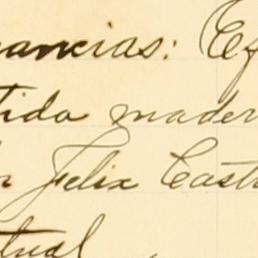 ancias: Ef
tida mader
r Felix Cast
tual